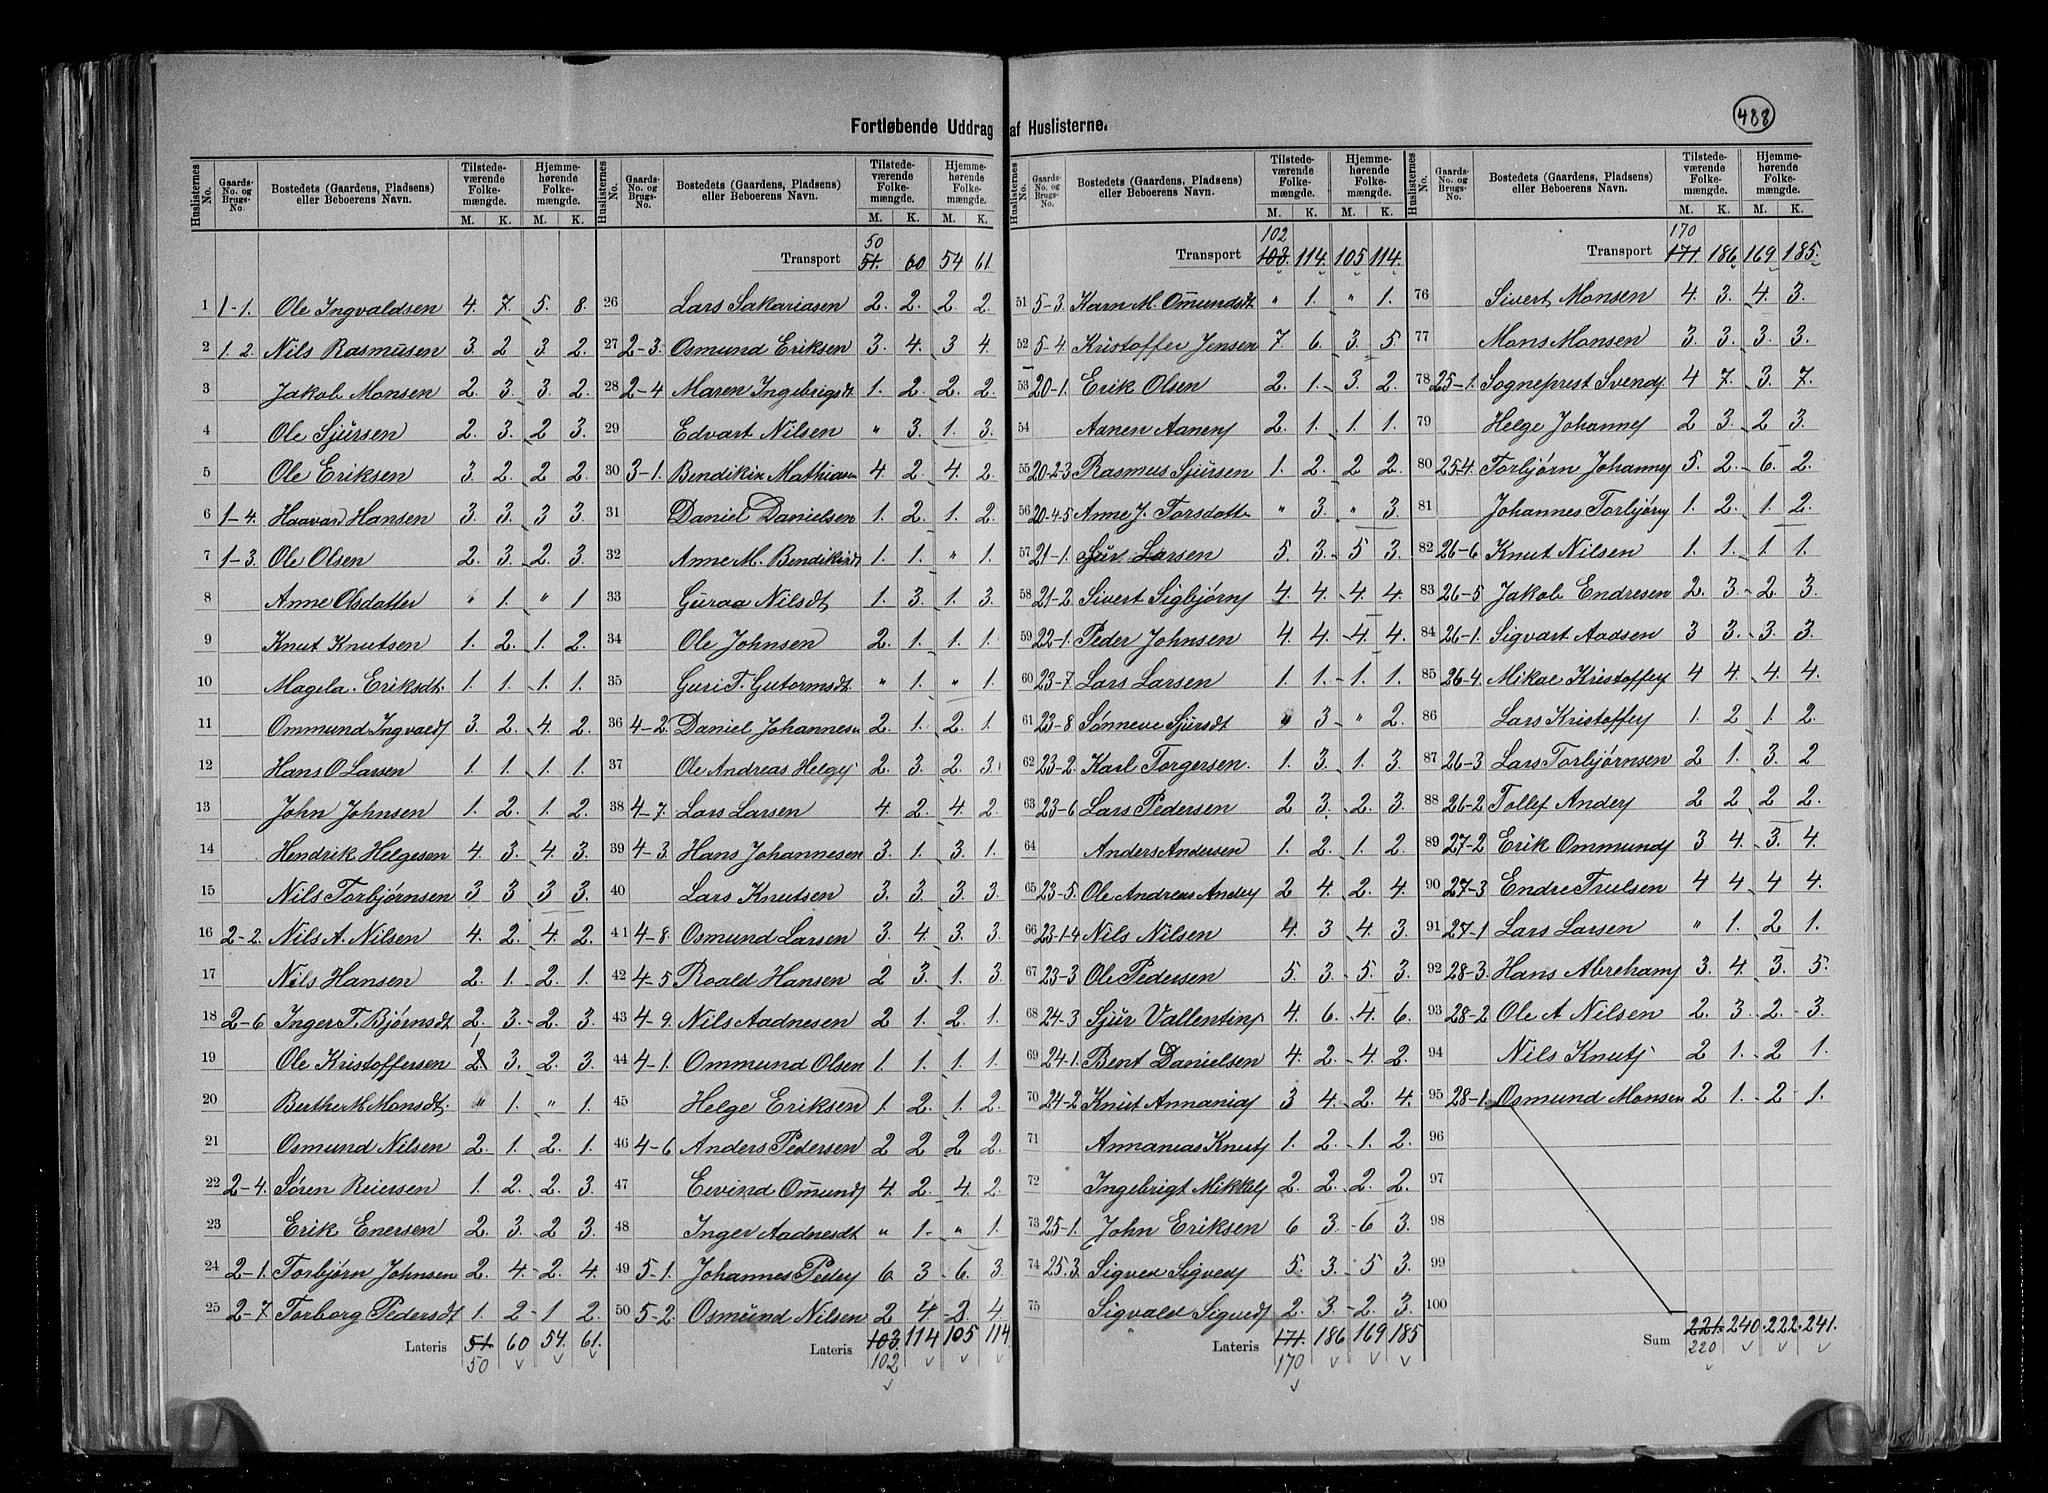 488
Fortløbende Uddrag af Huslisterne.
Huslisternes No. Gaards-No. og Brugs-No. Bostedets (Gaardens, Pladsens) eller Beboerens Navn. Tilstedeværende Folkemængde. M. K. Hjemmehørende Folkemængde. M. K.
Transport
1 1-1. Ole Ingvaldsen 4. 7. 5. 8.
2 1. 2. Nils Rasmusen 3. 2 3. 2.
3 Jakob Monsen 2. 3. 3. 2.
4 Ole Sjursen 2. 3. 2 3.
5 Ole Eriksen 3. 2. 2 2.
6 1-4. Haavar Hansen 3. 3. 3 3.
7 1-3. Ole Olsen 2. 3. 2 3.
8 Anne Olsdatter " 1. " 1
9 Knut Knutsen 1. 2. 1. 2.
10 Magela. Eriksdt. 1. 1. 1. 1.
11 Ommund Ingvaldj 3. 2. 4. 2.
12 Hans O Larsen 1. 1. 1. 1.
13 John Johnsen 1. 2. 1. 2.
14 Hendrik Helgesen 4. 3. 4. 3.
15 Nils Torbjørnsen 3 3 3. 3.
16 2-2. Nils A. Nilsen 4. 2. 4. 2.
17 Nils Hansen 2. 1. 2. 1.
18 2-6. Inger T. Bjørnsdt 2. 3. 2. 3.
19 Ole Kristoffersen 2 1 3. 2. 3.
20 Berthe M. Monsdt. " 1. " 1.
21 Osmund Nilsen 2. 1. 2. 1.
22 2-4. Søren Reiersen 1. 2. 2. 3.
23 Erik Enersen 2. 3. 2. 3.
24 2-1. Torbjørn Johnsen 2. 4. 2. 4.
25 2-7 Torborg Pedersdt 1. 2 1 2.
Lateris 51. 60 54. 61.
50
Huslisternes No. Gaards-No. og Brugs-No. Bostedets (Gaardens, Pladsens) eller Beboerens Navn. Tilstedeværende Folkemængde. M. K. Hjemmehørende Folkemængde. M. K.
50
Transport 51. 60 54 61.
26 Lars Sakariasen 2. 2. 2. 2.
27 2-3. Osmund Eriksen 3. 4. 3 4.
28 2-4 Maren Ingebrigsdt. 1. 2. 2. 2.
29 Edvart Nilsen " 3. 1. 3.
30 3-1. Bendikin Mathiasen 4. 2. 4. 2.
31 Daniel Danielsen 1. 2. 1. 2.
32 Anne M. Bendikindt 1. 1. " 1.
33 Guraa Nilsdt 1. 3. 1. 3.
34 Ole Johnsen 2. 1. 1. 1.
35 Guri T. Gutormsdt. " 1. " 1.
36 4-2. Daniel Johannesen 2. 1. 2. 1.
37 Ole Andreas Helgej 2. 3. 2. 3.
38 4-7. Lars Larsen 4. 2. 4. 2
39 4-3. Hans Johannesen 3. 1. 3. 1.
40 Lars Knutsen 3. 3. 3. 3.
41 4-8. Osmund Larsen 3. 4. 3. 3.
42 4-5 Roald Hansen 2 3. 1. 3.
43 4-9. Nils Aadnesen 2 1. 2. 1.
44 4-1. Ommund Olsen 1. 1. 1. 1.
45 Helge Eriksen 1. 2. 1. 2.
46 4-6 Anders Pedersen 2 2 2 2.
47 Eivind Omundj 4. 2. 4. 2.
48 Inger Aadnesdt " 1- " 1.
49 5-1. Johannes Pedej 6. 3 6. 3.
50 5-2. Osmund Nilsen 2 4- 2. 4.
Lateris 103. 114 105 114.
102
Huslisternes No. Gaards-No. og Brugs-No. Bostedets (Gaardens, Pladsens) eller Beboerens Navn. Tilstedeværende Folkemængde. M. K. Hjemmehørende Folkemængde. M. K.
102
Transport 103. 114. 105 114.
51 5-3. Karn M. Omundsdt. " 1. " 1.
52 5-4. Kristoffer Jensen 7 6. 3. 5.
53 20-1. Erik Olsen 2. 1. 3. 2.
54 Aanen Aanenj 2. 1. 1. 1.
55 20-2-3 Rasmus Sjursen 1. 2. 2 2.
56 20-4-5 Anne J. Torsdatt " 3. " 3.
57 21-1. Sjur Larsen 5. 3. 5 3.
58 21-2. Sivert Sigbjørnj 4. 4. 4. 4.
59 22-1. Peder Johnsen 4. 4. 4. 4.
60 23-7. Lars Larsen 1. 1. 1. 1.
61 23-8 Sønneve Sjursdt " 3. " 2.
62 23-2. Karl Torgersen. 1. 3. 1. 3.
63 23-6 Lars Pedersen 2 3. 2. 3.
64 Anders Andersen 1. 2. 1. 2.
65 23-5. Ole Andreas Andej 2 4. 2. 4.
66 23-1-4 Nils Nilsen 4. 3 4. 3.
67 23-3 Ole Pedersen 5. 3. 5. 3.
68 24-3 Sjur Vallentinj 4. 6. 4. 6.
69 24-1. Bent Danielsen 4. 2. 4. 2.
70 24-2 Knut Annaniaj 3 4. 2. 4.
71 Annanias Knutj 1. 2. 1. 2.
72 Ingebrigt Mikkelj 2. 2. 2. 2.
73 25-1. John Eriksen 6 3. 6 3.
74 25-3. Sigved Sigvedj 5. 3. 5 3.
75 Sigvald Sigvedj 2. 3. 2. 3.
Lateris 171. 186 169 185
170
Huslisternes No. Gaards-No. og Brugs-No. Bostedets (Gaardens, Pladsens) eller Beboerens Navn. Tilstedeværende Folkemængde. M. K. Hjemmehørende Folkemængde. M. K.
170
Transport 171. 186. 169. 185.
76 Sivert Monsen 4. 3. 4. 3.
77 Mons Monsen 3. 3. 3. 3.
78 25-1. Sogneprest Svendj 4 7. 3. 7.
79 Helge Johannej 2 3. 2 3.
80 25-4. Torbjørn Johannej 5. 2. 6. 2.
81 Johannes Torbjørnj 1. 2. 1. 2.
82 26-6 Knut Nilsen 1. 1. 1. 1.
83 26-5 Jakob Endresen 2. 3. 2. 3.
84 26-1. Sigvart Aadsen 3 3. 3. 3.
85 26-4. Mikal Kristoffej 4 4. 4. 4.
86 Lars Kristoffej 1. 2 1. 2.
87 26-3 Lars Torbjørnsen 2 1. 3. 2
88 26-2 Tollef Andej 2 2 2 2.
89 27-2 Erik Ommundj 3 4. 3. 4.
90 27-3 Endre Truelsen 4 4. 4 4.
91 27-1 Lars Larsen " 1. 2 1.
92 28-3. Hans Abrehamj 3. 4. 3. 5.
93 28-2 Ole A Nilsen 2. 3. 2. 3.
94 Nils Knutj 2 1. 2 1.
95 28-1. Osmund Monsen 2 1. 2 1.
96
97
98
99
100
Sum 221. 240. 222. 241.
220